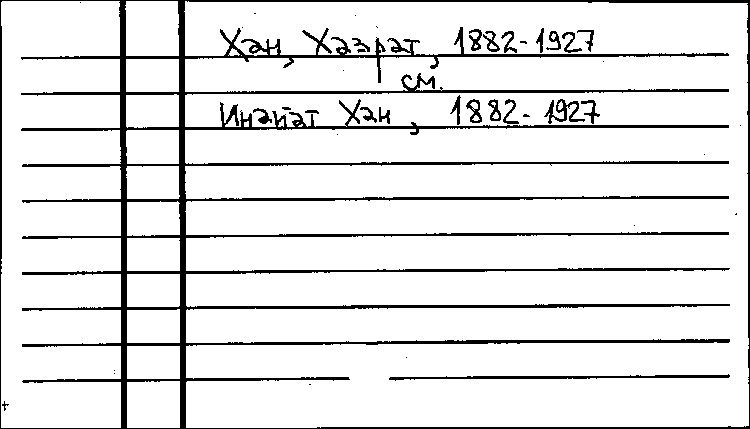 Хан, Хазрат, 1882-1927
см.
Инайат Хан, 1882-1927